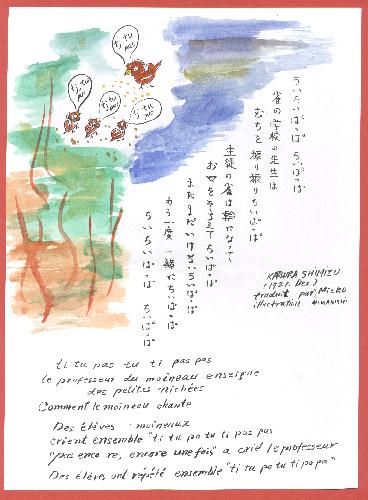 ti tu
pas
ti tu
pas
ti tu
pas
ti tu
pas
ちいちいぱっぱ ちいぱっぱ
雀の学校の先生は
むちを振り振りちいぱっぱ
生徒の雀は輪になって
お口をそろえてちいぱっぱ
まだまだいけないちいぱっぱ
も一度一緒にちいぱっぱ
ちいちいぱっぱ ちいぱっぱ
KATSURA SHIMIZU
(1921. Dec)
traduit par MIEKO
illustration
ti tu pas tu ti pas pas
le professeur du moineau enseigne
des petites nichées
Comment le moineau chante
Des élèves moineaux
crient ensemble "ti tu pa tu ti pas pas
"pas enco re, encore une fois" a crié le professeur
Des élèves ont répété ensemble "ti tu pa tu ti pa pa"